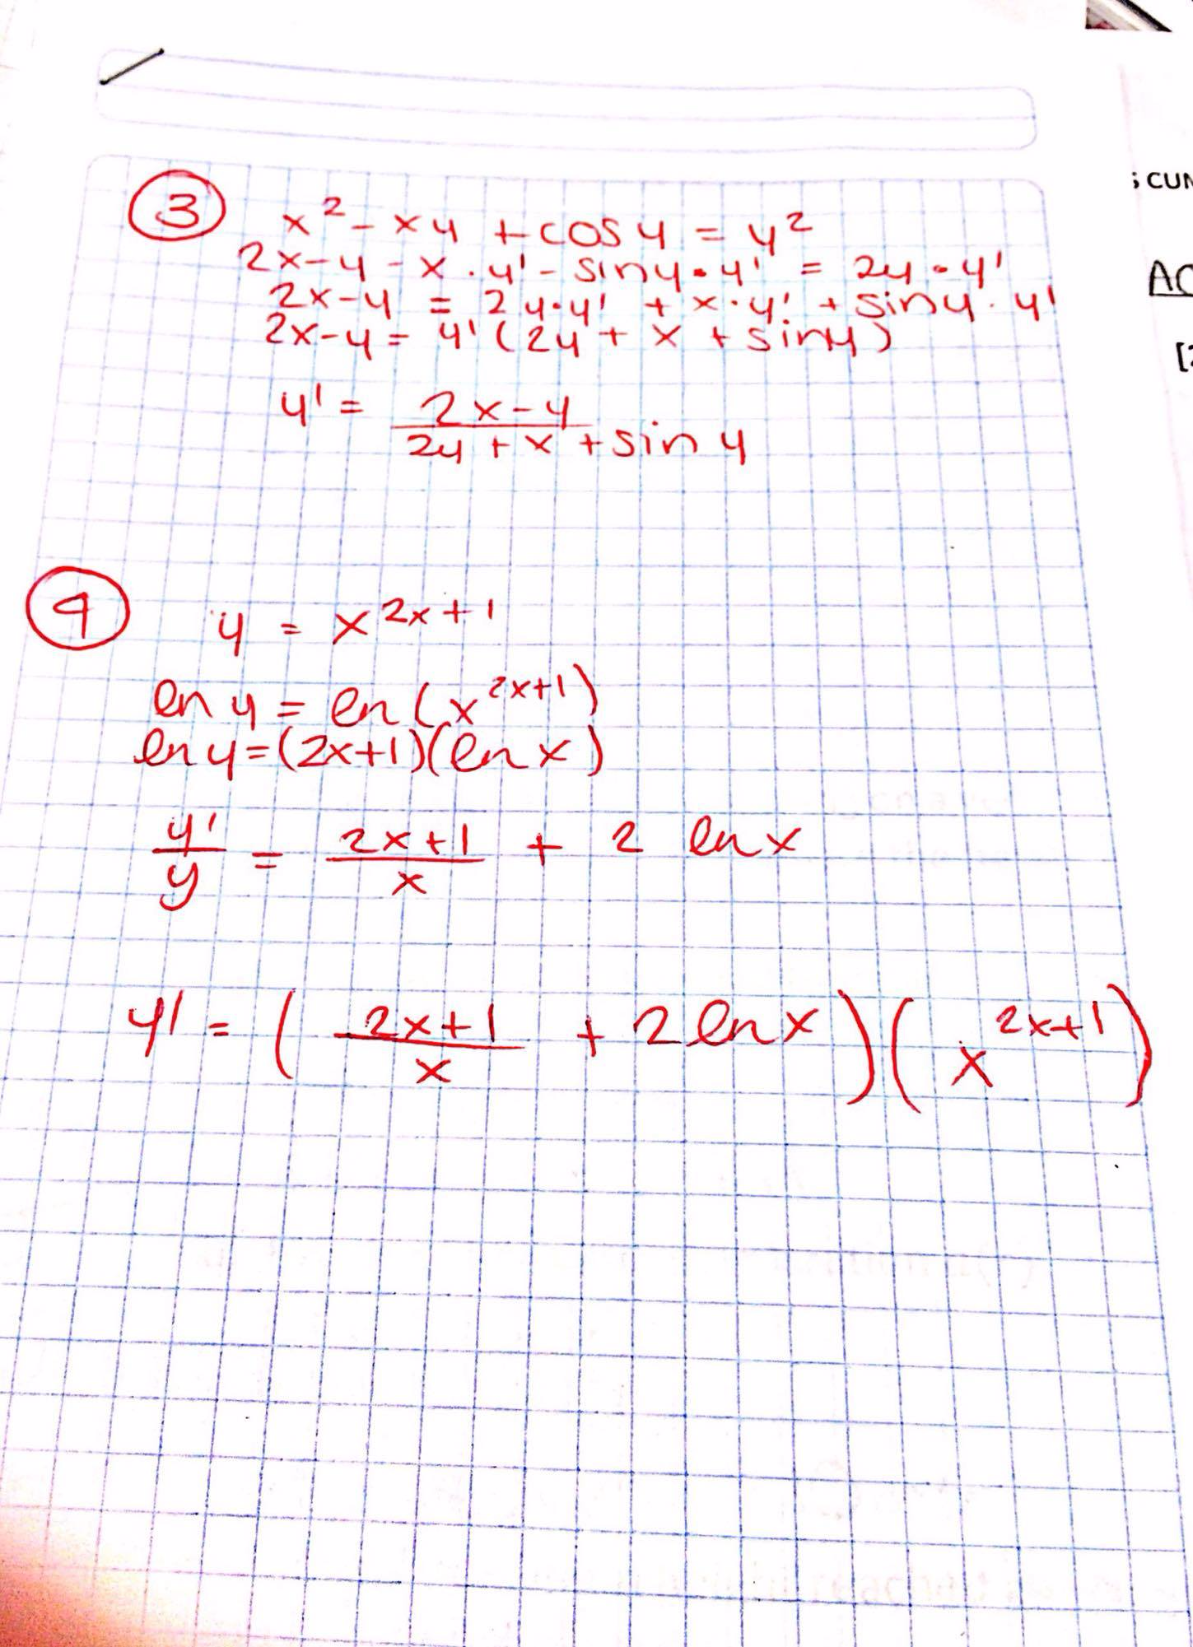 ③ x² - xy + cos y = y²
2x - y - x · y' - sin y · y' = 2y · y'
2x - y = 2y · y' + x · y' + sin y · y'
2x - y = y' (2y + x + sin y)
y' = (2x - y)/(2y + x + sin y)
⑨ y = x^(2x+1)
ln y = ln (x^(2x+1))
ln y = (2x+1)(ln x)
y'/y = (2x+1)/x + 2 ln x
y' = ((2x+1)/x + 2 ln x)(x^(2x+1))